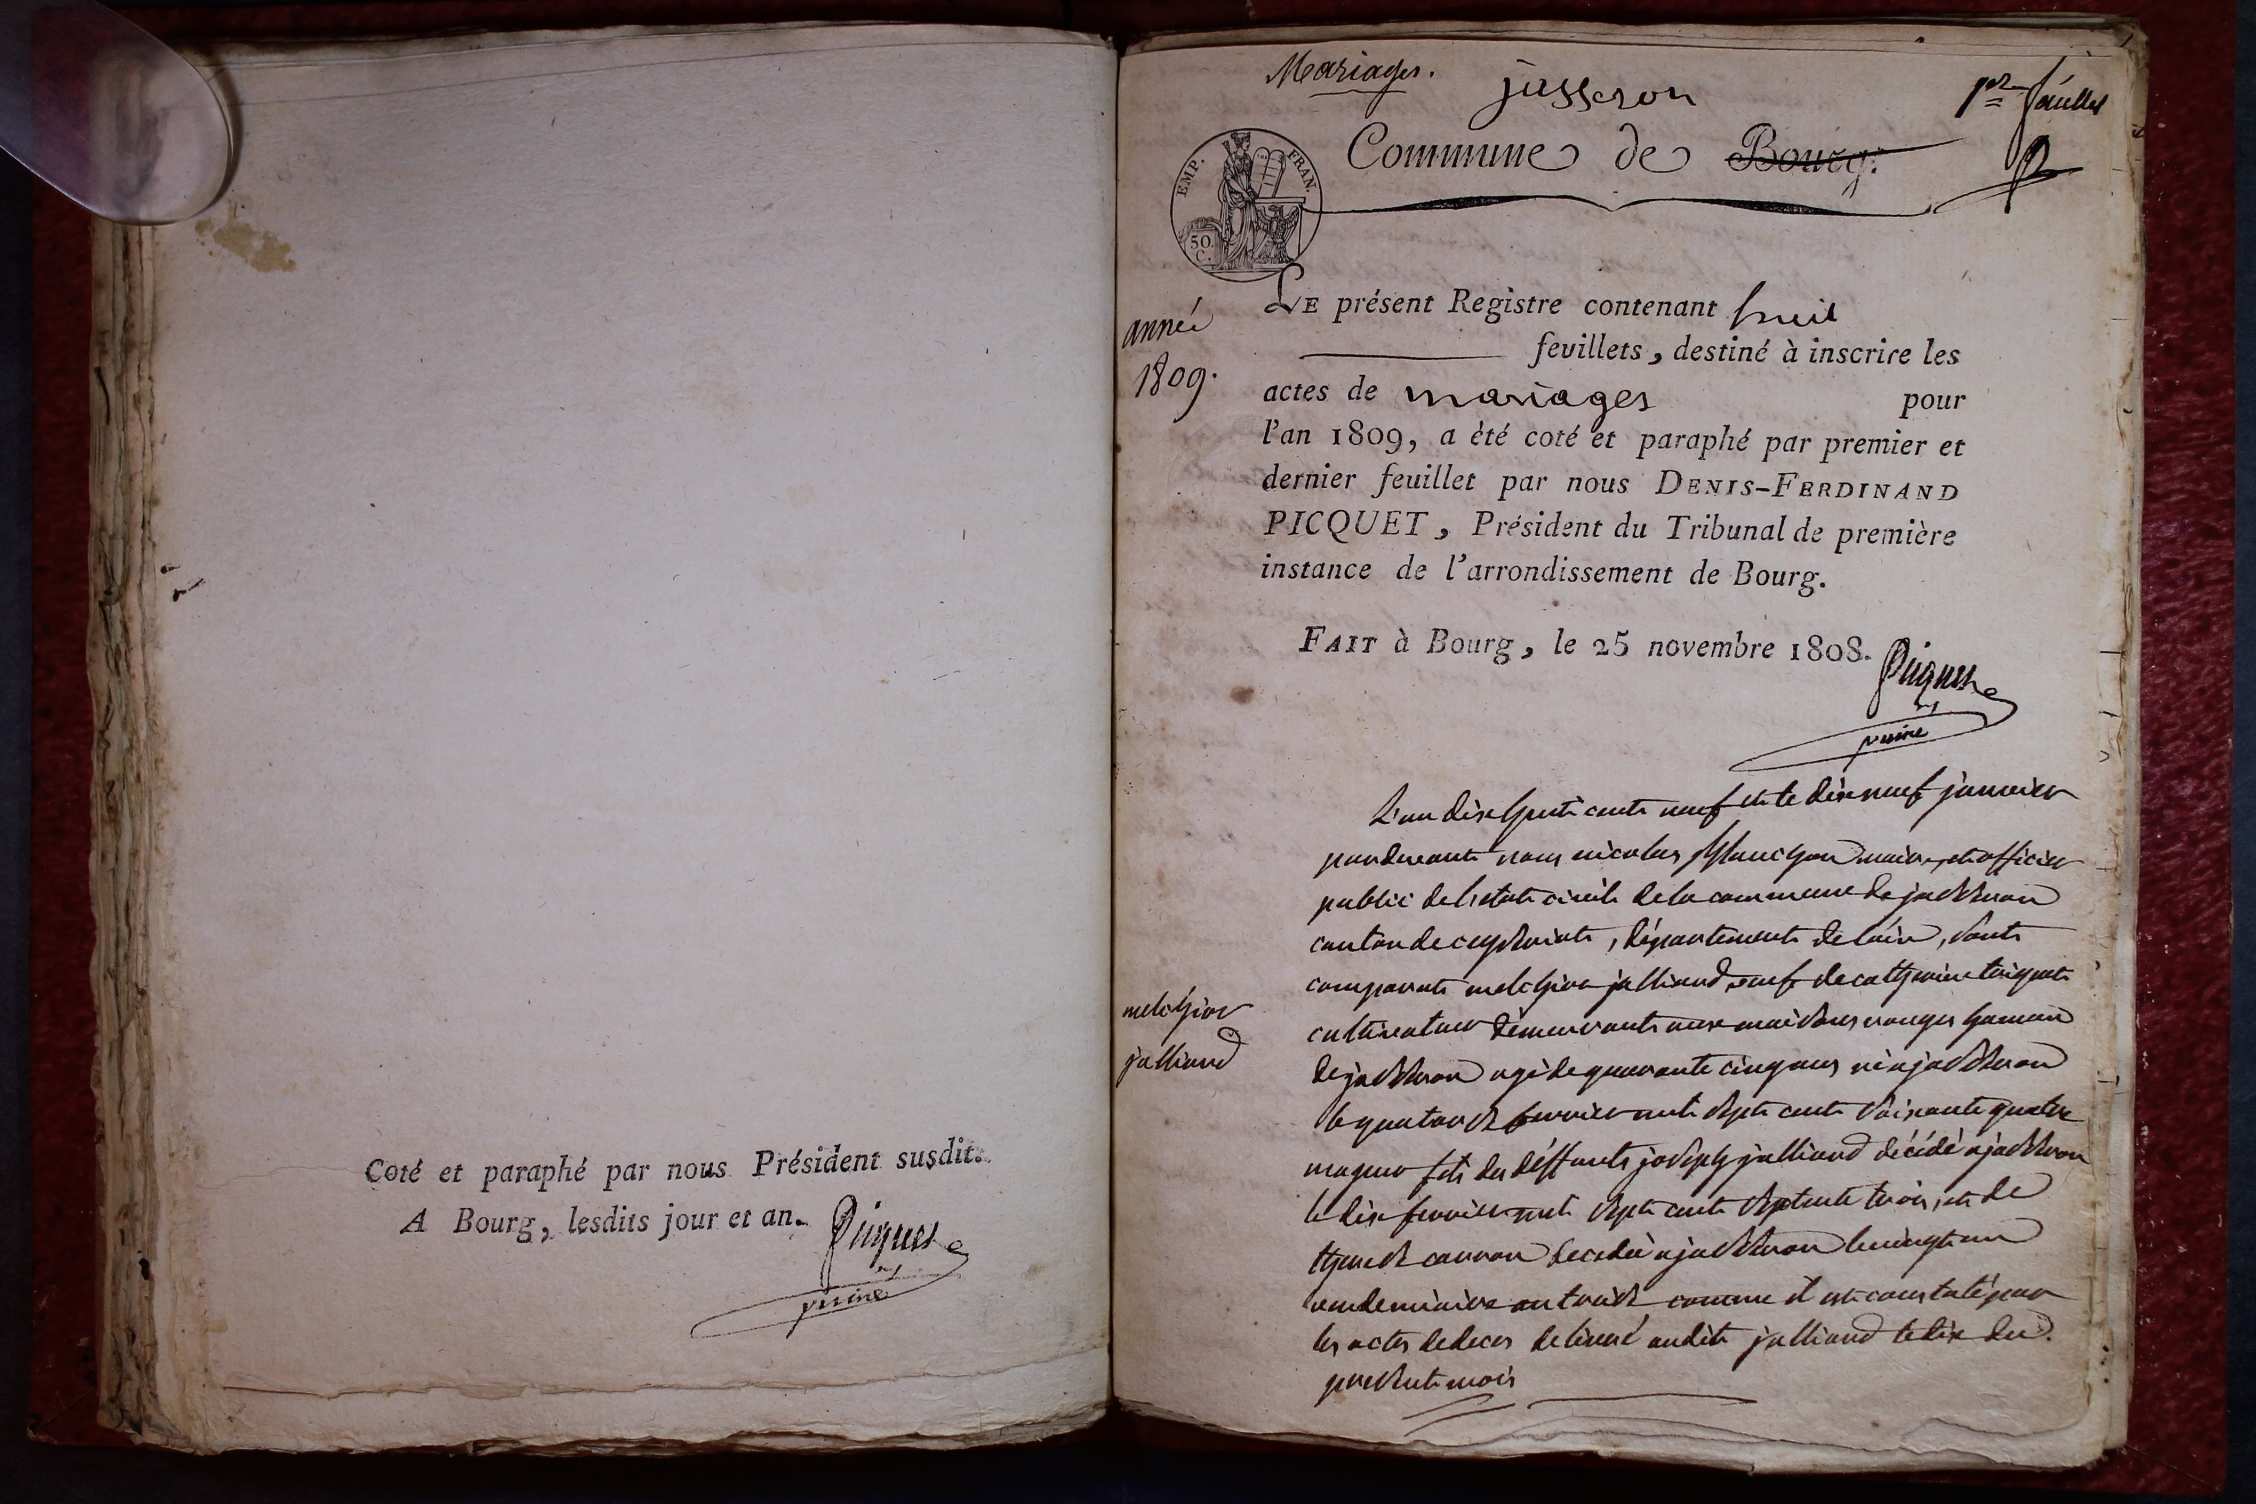 Coté et paraphé par nous Président susdit.
A Bourg, lesdits jour et an.
Picquet
Mariages.
jasseron
1er feuillet
Commune de Bourg.
EMP. FRAN.
50 C.
LE présent Registre contenant huit
feuillets, destiné à inscrire les
actes de mariages pour
l'an 1809, a été coté et paraphé par premier et
dernier feuillet par nous DENIS-FERDINAND
PICQUET, Président du Tribunal de première
instance de l'arrondissement de Bourg.
FAIT à Bourg, le 25 novembre 1808.
Picquet
année
1809.
L'an dix huit cent neuf et le dix neuf janvier
pardevant nous nicolas maire et officier
public de l'etat civil de la commune de jasseron
canton de ceyseriat, département de lain, sont
comparut melchior jalliand veuf de catherine
cultivateur demeurant aux maisons rouges hamau
de jasseron agé de quarante cinq ans né a jasseron
le quatorse fevrier mil sept cent soixante quatre
majeur fils des deffunts joseph jalliand décédé a jasseron
le dix fevrier mil sept cent septante trois, et de
decedée a jasseron le vingt un
vendemiaire an treise comme il est constaté par
les actes de deces delivré audit jalliand le dix du
present mois
melchior
jalliand